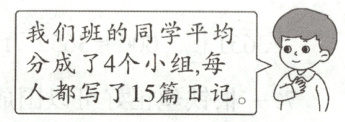 我们班的同学平均
分成了4个小组,每
人都写了15篇日记。